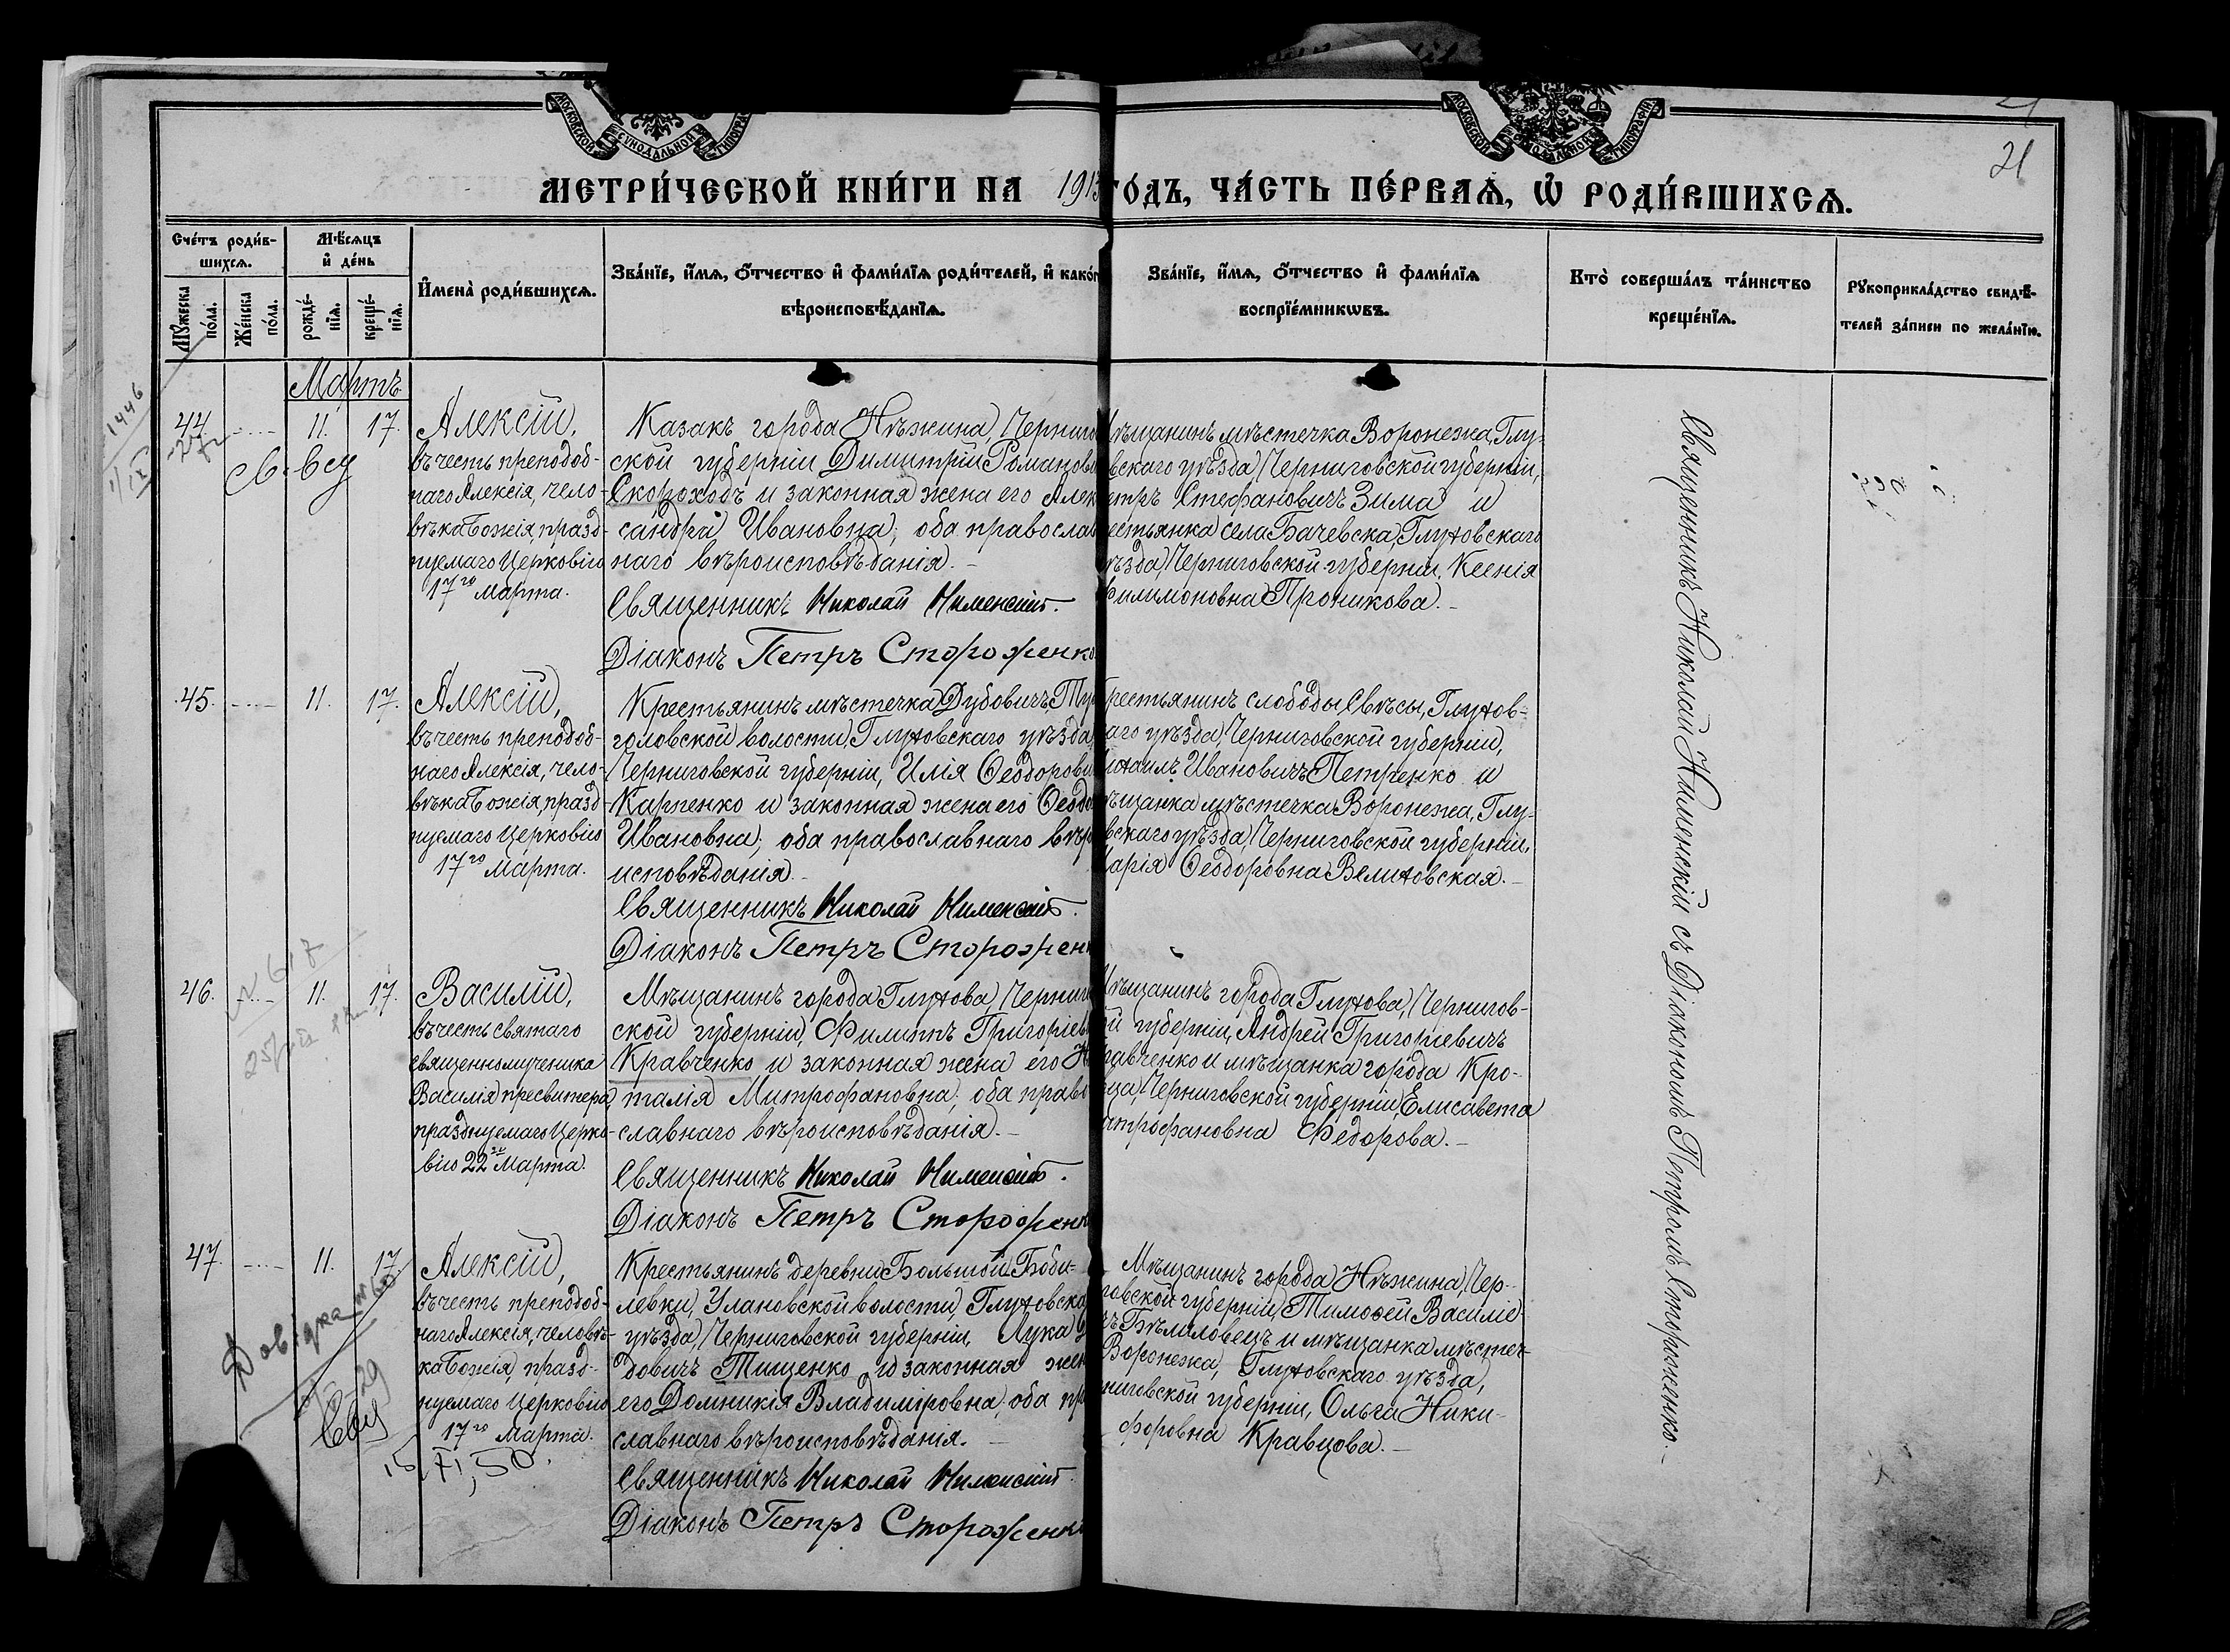 МОСКОВСКОЙ СѴНОДАЛЬНОЙ ТИПОГРАФІИ
МОСКОВСКОЙ СѴНОДАЛЬНОЙ ТИПОГРАФІИ
21
МЕТРИ́ЧЕСКОЙ КНИ́ГИ НА 1913 ГО́ДЪ, ЧА́СТЬ ПЕ́РВАѦ, Ѡ҆ РОДИ́ВШИХСѦ.
Сче́тъ роди́в-
шихсѧ.
Мужеска по́ла.
Же́нска по́ла.
Мѣ́сѧцъ
и҆ де́нь
рожде́-
нїѧ.
креще́-
нїѧ.
И҆мена̀ роди́вшихсѧ.
Зва́нїе, и҆́мѧ, ѻ҆́тчество и҆ фами́лїѧ роди́телей, и҆ како́г
вѣроисповѣ́данїѧ.
Зва́нїе, и҆́мѧ, ѻ҆́тчество и҆ фами́лїѧ
воспрїе́мникѡвъ.
Кто̀ соверша́лъ та́инство
креще́нїѧ.
Рꙋкоприкла́дство свидѣ́-
телей за́писи по жела́нїю.
Мартъ
1446
44.
11. 17.
Алексій,
въ честь преподоб-
наго Алексія, чело-
вѣка Божія, празд-
нуемаго Церковію
17го Марта.
Казакъ города Нѣжина, Черниго
ской губерніи Димитрій Романови
Скороходъ и законная жена его Алек
сандра Ивановна; оба православ
наго вѣроисповѣданія.-
Священникъ Николай Нименскій.
Діаконъ Петръ Стороженко
ѣщанинъ мѣстечка Воронежа, Глу-
вскаго уѣзда, Черниговской губерніи,
етръ Стефановичъ Зима и
естьянка села Бачевска, Глуховскаго
ѣзда, Черниговской губерніи, Ксенія
Филимоновна Проникова.-
45.
11. 17.
Алексій,
въ честь преподоб-
наго Алексія, чело-
вѣка Божія, празд-
нуемаго Церковію
17го Марта.
Крестьянинъ мѣстечка Дубовичъ, Ту
головской волости, Глуховскаго уѣзда,
Черниговской губерніи, Илія Ѳеодорови
Карпенко и законная жена его Ѳеодо
Ивановна; оба православнаго вѣро
исповѣданія.-
Священникъ Николай Нименскій.
Діаконъ Петръ Сторожен
рестьянинъ слободы Свѣсы, Глухов-
каго уѣзда, Черниговской губерніи,
ихаилъ Ивановичъ Петренко и
ѣщанка мѣстечка Воронежа, Глу-
вскаго уѣзда, Черниговской губерніи,
Марія Ѳеодоровна Велиховская.-
46.
11. 17.
Василій,
въ честь святаго
священномученика
Василія пресвитера,
празднуемаго Церко-
вію 22го Марта.
Мѣщанинъ города Глухова, Черниго
ской губерніи, Филиппъ Григоріев
Кравченко и законная жена его На
талія Митрофановна; оба право
славнаго вѣроисповѣданія.-
Священникъ Николай Нименскій.
Діаконъ Петръ Стороженк
Мѣщанинъ города Глухова, Чернигов-
ой губерніи, Андрей Григоріевичъ
равченко и мѣщанка города Кро-
вца, Черниговской губерніи, Елисавета
итрофановна Федорова.-
47.
11. 17.
Алексій,
въ честь преподоб-
наго Алексія, человѣ-
ка Божія, празд-
нуемаго Церковію
17го Марта.
Довідка №60
Крестьянинъ деревни Большой Боби-
левки, Улановской волости, Глуховска
уѣзда, Черниговской губерніи, Лука
довичъ Тищенко и законная жен
его Домникія Владиміровна; оба пр
славнаго вѣроисповѣданія.-
Священникъ Николай Нименскій.
Діаконъ Петръ Стороженк
Мѣщанинъ города Нѣжина, Чер-
говской губерніи, Тимоѳей Василіе-
чъ Бѣлиловецъ и мѣщанка мѣстеч-
Воронежа, Глуховскаго уѣзда,
ниговской губерніи, Ольга Ники-
форовна Кравцова.-
Священникъ Николай Нименскій съ Діакономъ Петромъ Стороженко.-